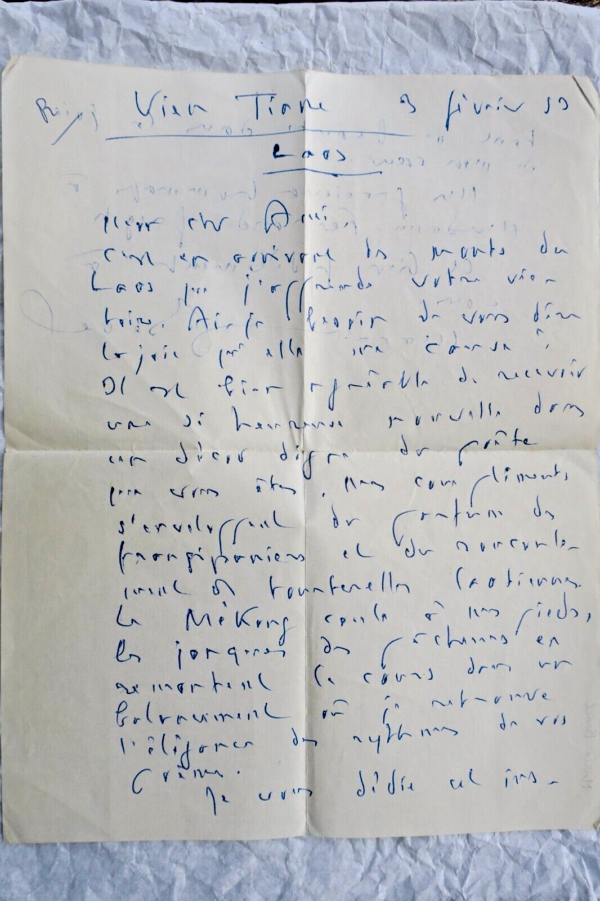 Vien Tiane 3 février 53
Laos
Mon cher Ami
C'est en arrivant des monts du
Laos que j'apprends votre vic-
toire. Ai-je besoin de vous dire
la joie qu'elle me cause !
Il est bien agréable de recevoir
une si heureuse nouvelle dans
un décor digne du poète
que vous êtes. Mes compliments
s'enveloppent du parfum des
frangipaniers et du roucoule-
ment de tourterelles laotiennes.
Le Mékong coule à mes pieds,
les jonques des pêcheurs en
remontent le cours dans un
balancement où je retrouve
l'élégance des rythmes de vos
Je vous dédie cet ins-